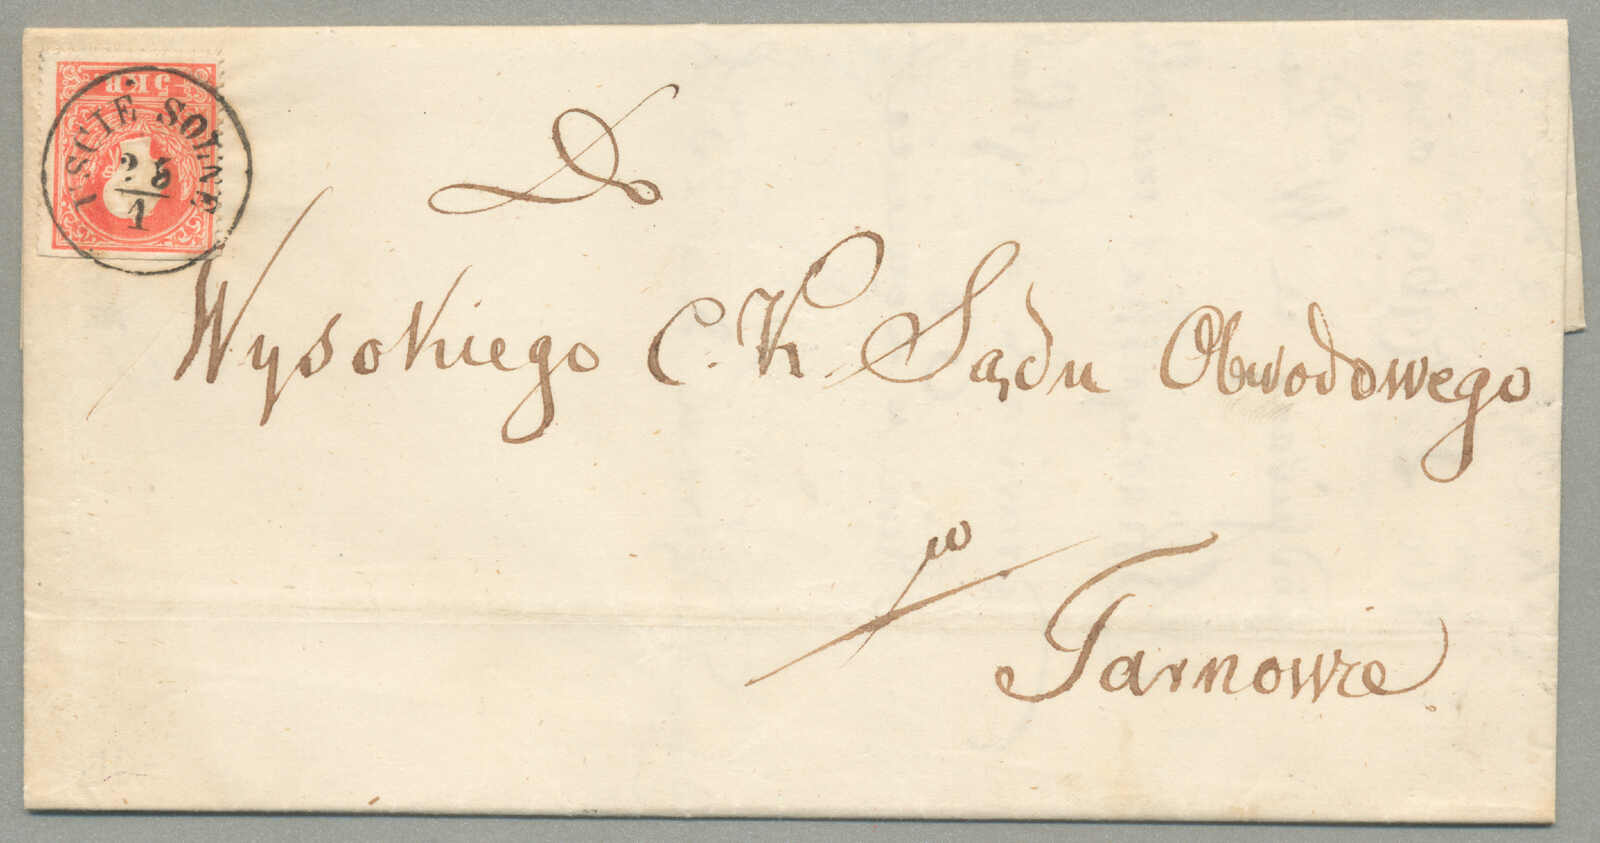 5 KR.
USCIE SOLNE
28
1
Do
Wysokiego C. K. Sądu Obwodowego
w
Tarnowie